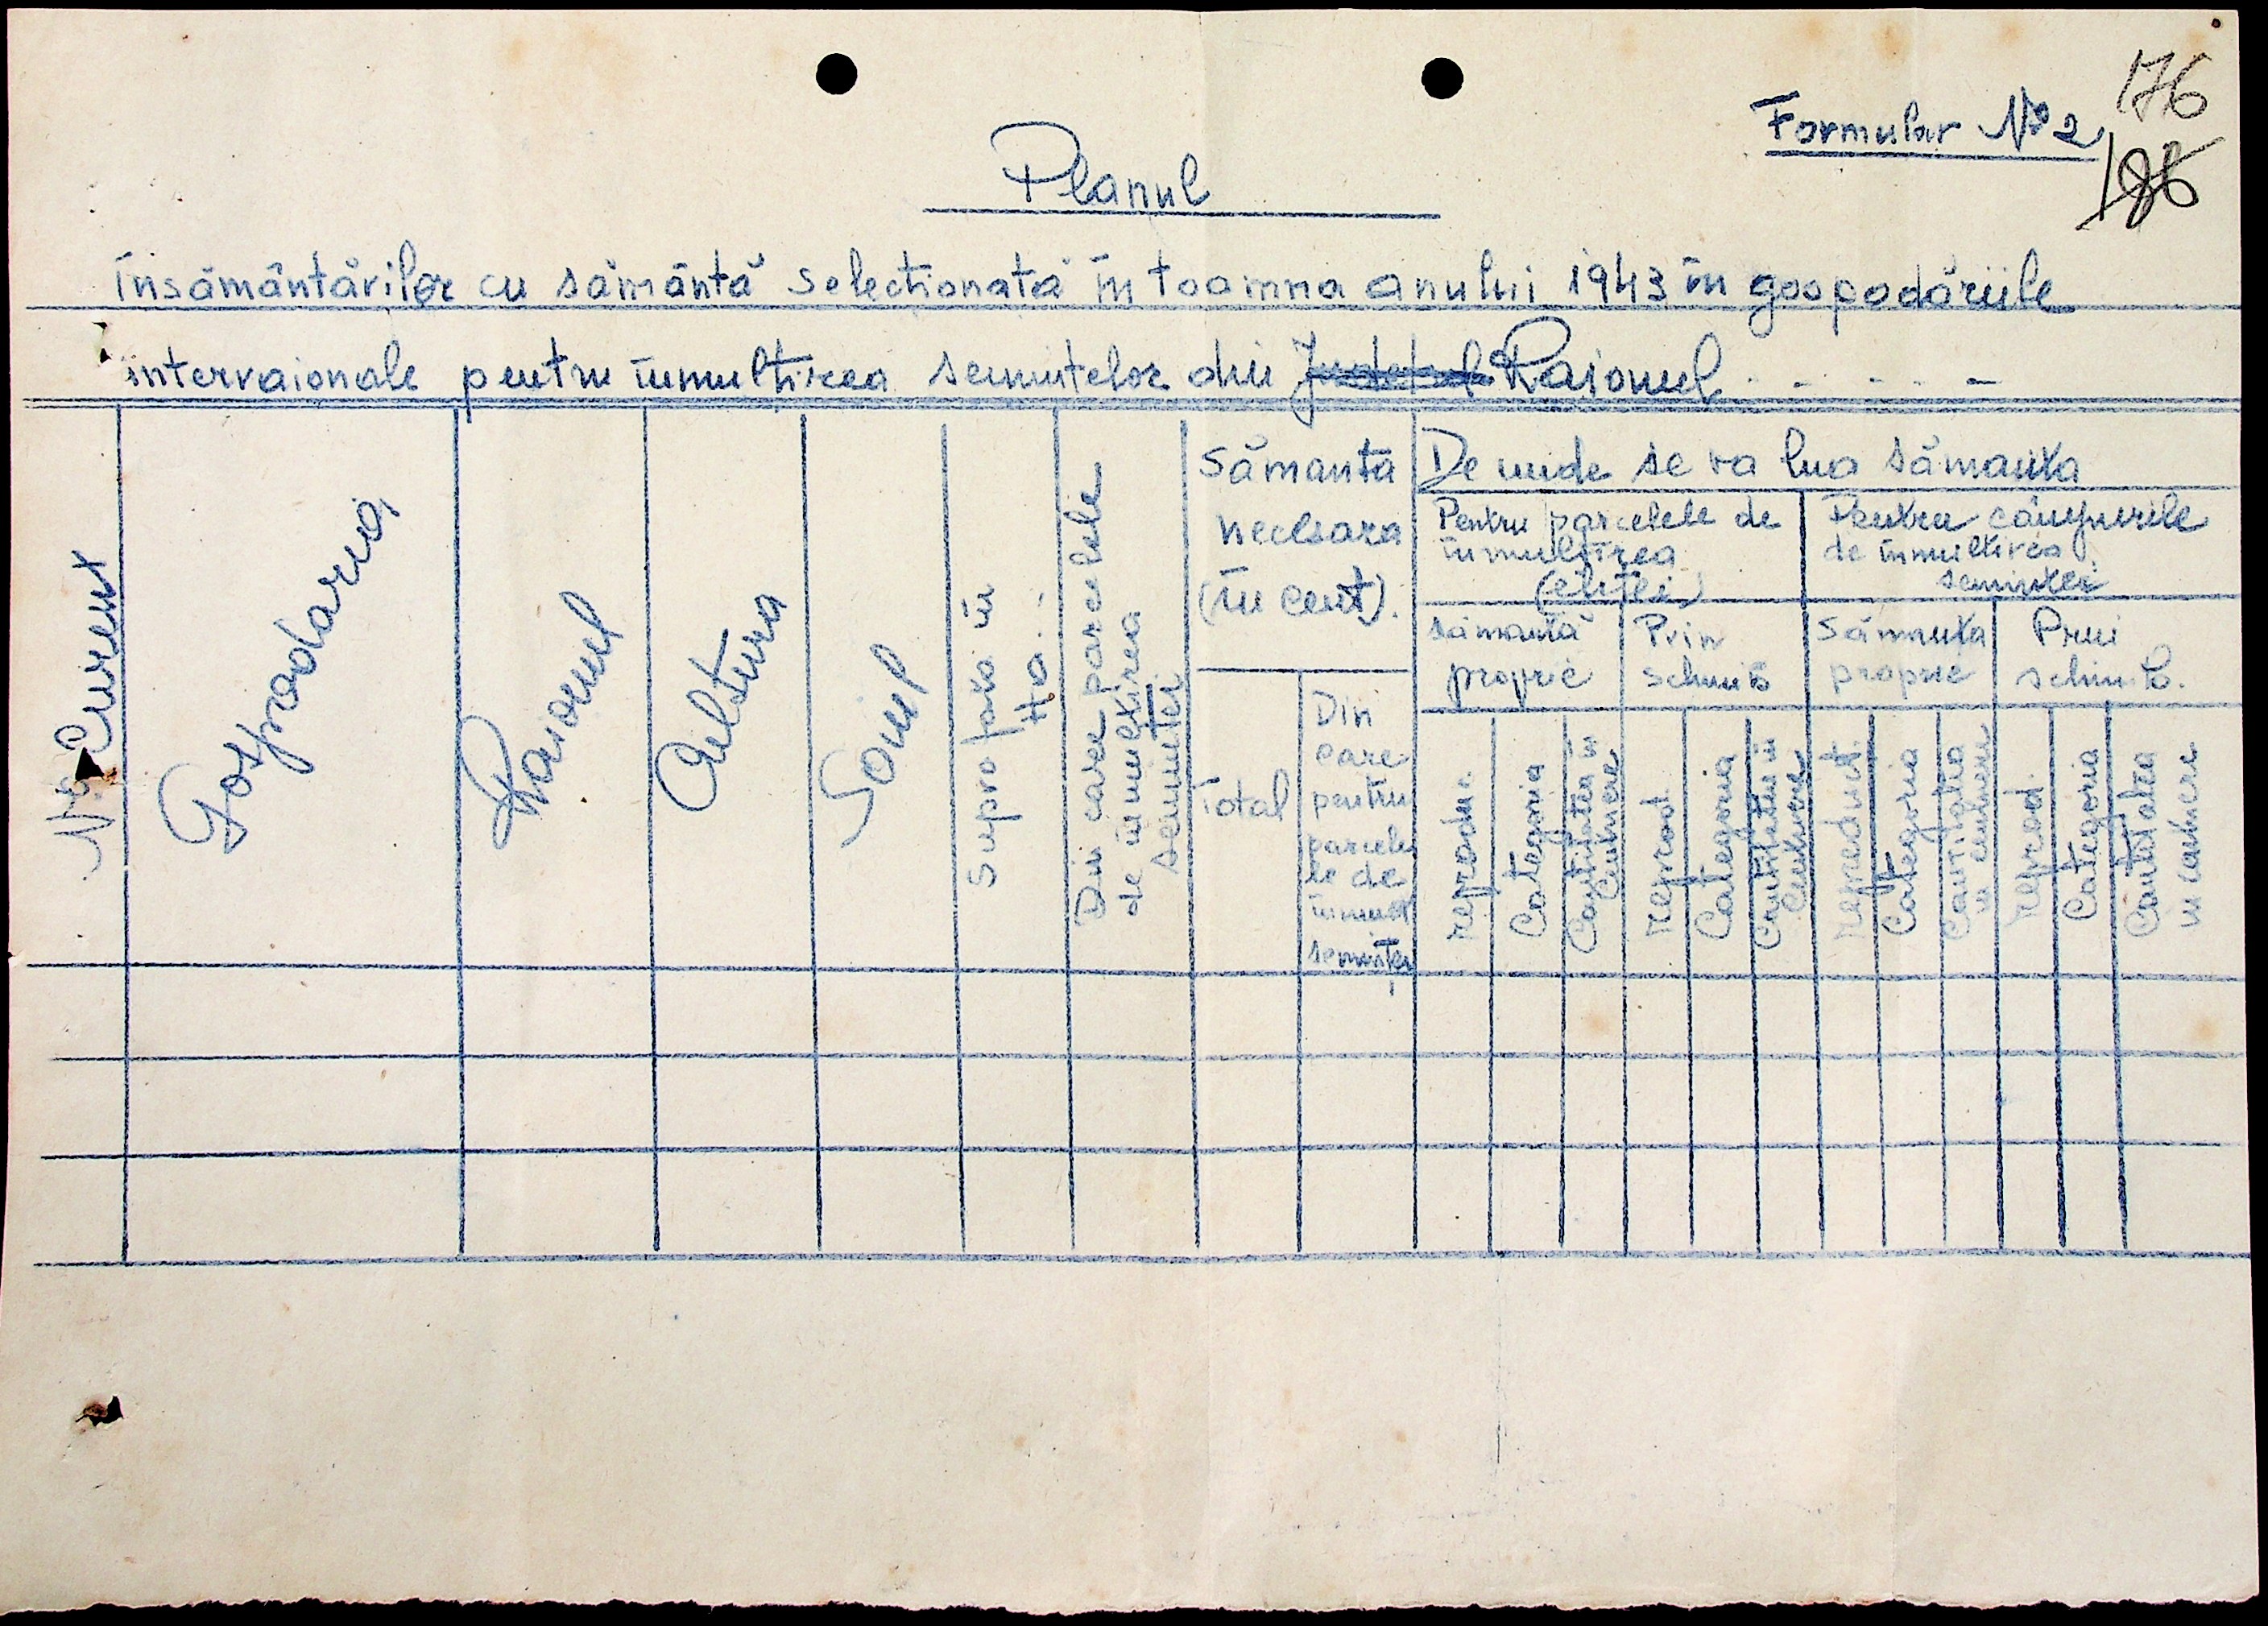 176
Formular № 2
186
Planul
însămânțărilor cu sămânță selecționată în toamna anului 1943 în gospodăriile
interraionale pentru înmulțirea semințelor din Județul Raionul . . . . .
№ Curent
Gospodaria
Raionul
Cultura
Soiul
Suprafața în
Ha.
Din care parcelele
de înmulțirea
seminței
Sămanța
necesara
(în cent).
Total
Din
care
pentru
parcele
le de
înmulț
seminței
De unde se va lua sămanța
Pentru parcelele de
înmulțirea
(elitei)
Pentru câmpurile
de înmulțirea
seminței
sămanță
proprie
Prin
schimb
Sămanța
proprie
Prin
schimb.
reproduc.
Categoria
Cantitatea în
centnere
reprod.
Categoria
Cantitatea în
centnere
reproduct.
Categoria
Cantitatea
în centnere
reprod.
Categoria
Cantitatea
în centnere